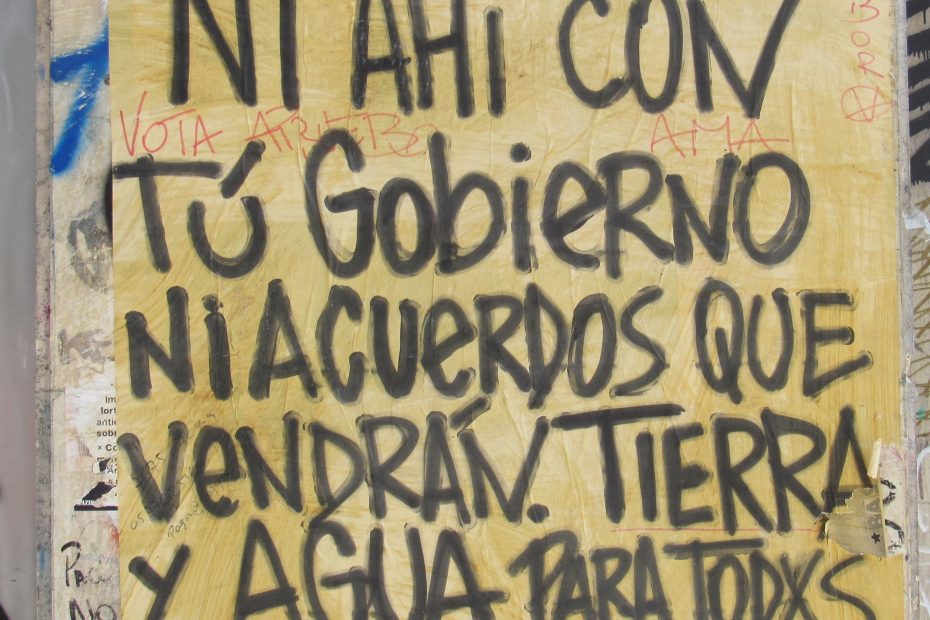 NI AHI CON
VOTA
AMA
TÚ GOBIERNO
NI ACUERDOS QUE
VENDRÁN. TIERRA
Y AGUA PARA TODXS
NO